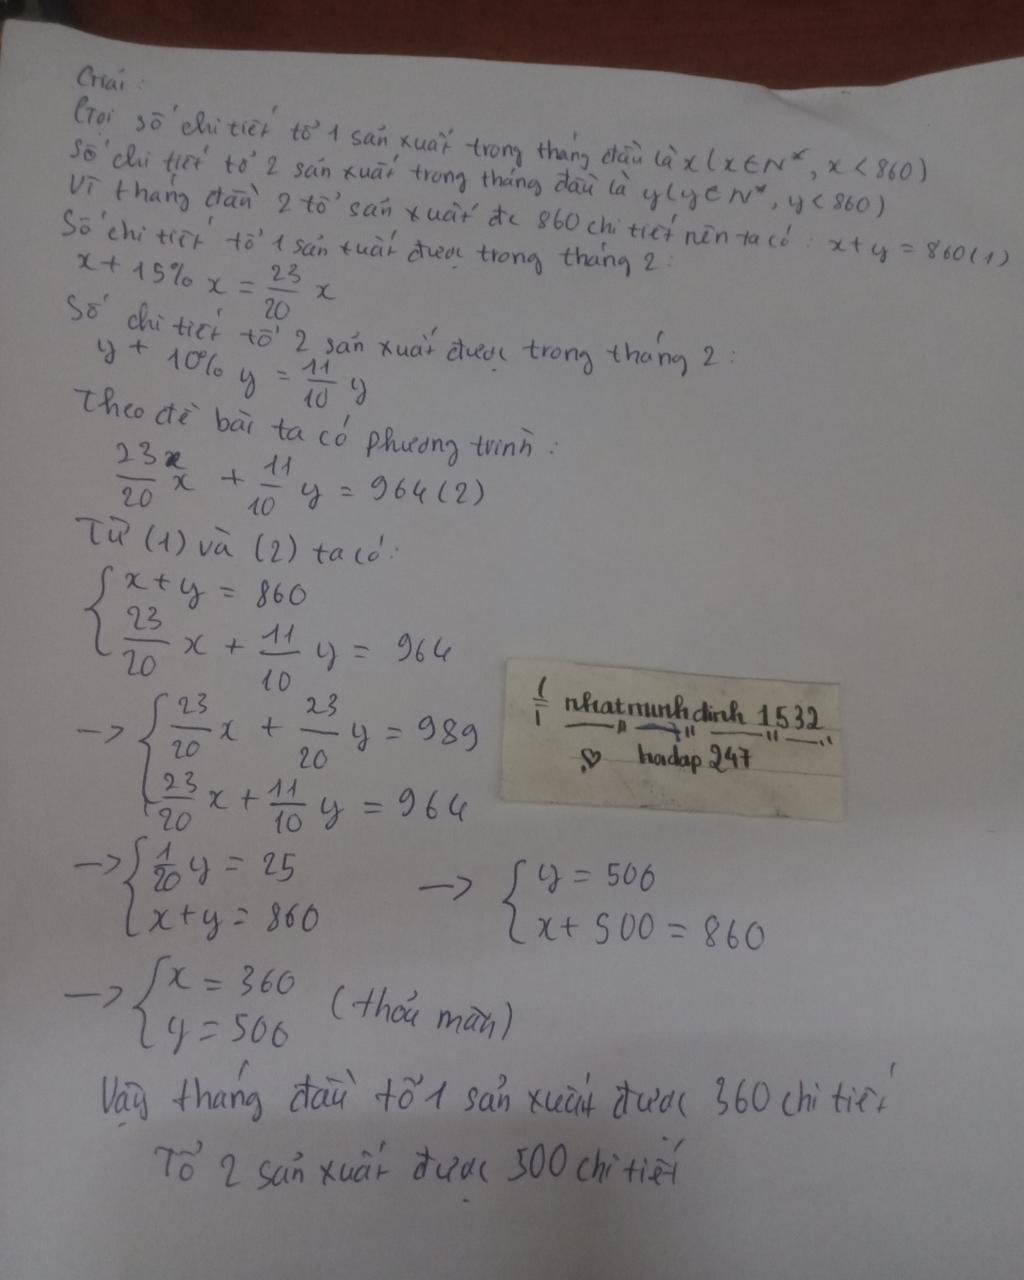 Giải :
Gọi số chi tiết tổ 1 sản xuất trong tháng đầu là x (x ∈ N*, x < 860)
Số chi tiết tổ 2 sản xuất trong tháng đầu là y (y ∈ N*, y < 860)
Vì tháng đầu 2 tổ sản xuất đc 860 chi tiết nên ta có : x + y = 860 (1)
Số chi tiết tổ 1 sản xuất được trong tháng 2 :
x + 15% x = 23/20 x
Số chi tiết tổ 2 sản xuất được trong tháng 2 :
y + 10% y = 11/10 y
Theo đề bài ta có phương trình :
23/20 x + 11/10 y = 964 (2)
Từ (1) và (2) ta có :
{ x + y = 860
23/20 x + 11/10 y = 964
-> { 23/20 x + 23/20 y = 989
23/20 x + 11/10 y = 964
-> { 1/20 y = 25
x + y = 860
-> { y = 500
x + 500 = 860
-> { x = 360
y = 500 (thỏa mãn)
Vậy tháng đầu tổ 1 sản xuất được 360 chi tiết
Tổ 2 sản xuất được 500 chi tiết
nhatminhdinh 1532
hoidap 247